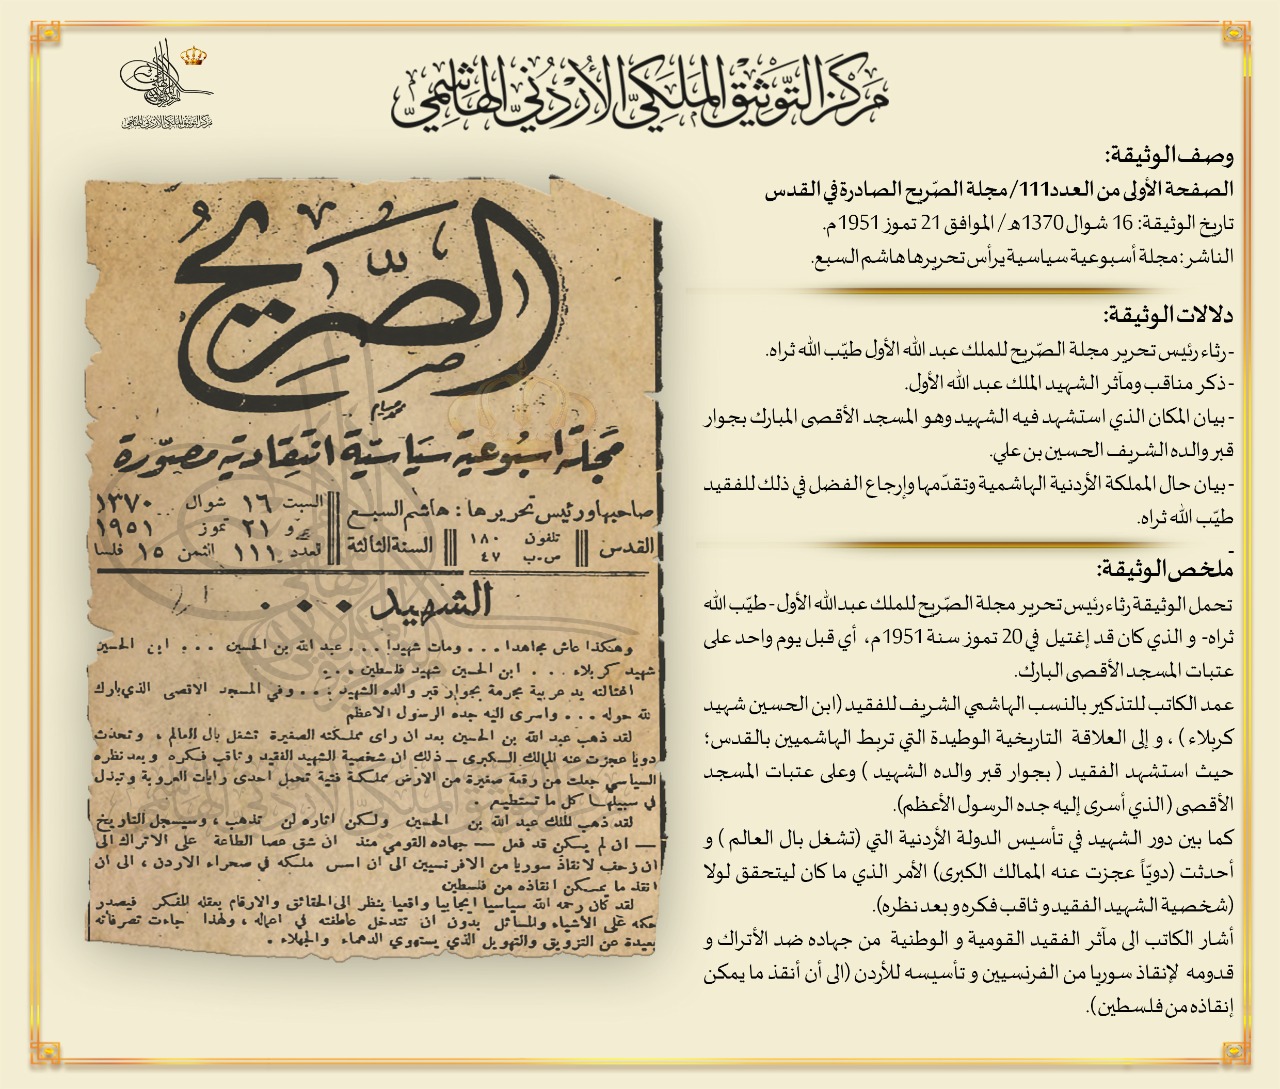 مركز التوثيق الملكي الأردني الهاشمي
مركز التوثيق الملكي الأردني الهاشمي
وصف الوثيقة:
الصفحة الأولى من العدد111/ مجلة الصّريح الصادرة في القدس
تاريخ الوثيقة: 16 شوال 1370هـ / الموافق 21 تموز 1951م.
الناشر: مجلة أسبوعية سياسية يرأس تحريرها هاشم السبع.
دلالات الوثيقة:
-رثاء رئيس تحرير مجلة الصّريح للملك عبد الله الأول طيّب الله ثراه.
-ذكر مناقب ومآثر الشهيد الملك عبد الله الأول.
- بيان المكان الذي استشهد فيه الشهيد وهو المسجد الأقصى المبارك بجوار
قبر والده الشريف الحسين بن علي.
- بيان حال المملكة الأردنية الهاشمية وتقدّمها وإرجاع الفضل في ذلك للفقيد
طيّب الله ثراه.
-
ملخص الوثيقة:
تحمل الوثيقة رثاء رئيس تحرير مجلة الصّريح للملك عبدالله الأول - طيّب الله
ثراه- و الذي كان قد إغتيل في 20 تموز سنة 1951م، أي قبل يوم واحد على
عتبات المسجد الأقصى البارك.
عمد الكاتب للتذكير بالنسب الهاشمي الشريف للفقيد (ابن الحسين شهيد
كربلاء ) ، و إلى العلاقة التاريخية الوطيدة التي تربط الهاشميين بالقدس؛
حيث استشهد الفقيد ( بجوار قبر والده الشهيد ) وعلى عتبات المسجد
الأقصى ( الذي أسرى إليه جده الرسول الأعظم).
كما بين دور الشهيد في تأسيس الدولة الأردنية التي (تشغل بال العالم ) و
أحدثت (دويّاً عجزت عنه الممالك الكبرى) الأمر الذي ما كان ليتحقق لولا
(شخصية الشهيد الفقيد و ثاقب فكره و بعد نظره).
أشار الكاتب الى مآثر الفقيد القومية و الوطنية من جهاده ضد الأتراك و
قدومه لإنقاذ سوريا من الفرنسيين و تأسيسه للأردن (الى أن أنقذ ما يمكن
إنقاذه من فلسطين ).
الصَّريح
محمد صيام
مجلة اسبُوعية سيَاسيَة انتقادية مصوّرة
صاحبها ورئيس تحريرها : هاشم السبع
القدس
تلفون ١٨٠
ص.ب ٤٧
السنة الثالثة
السبت ١٦ شوال ١٣٧٠
و ٢١ تموز ١٩٥١
العدد ١١١ الثمن ١٥ فلسا
الشهيد ...
وهكذا عاش مجاهدا ... ومات شهيدا ... عبد الله بن الحسين ... ابن الحسين
شهيد كربلاء ... ابن الحسين شهيد فلسطين ...
اغتالته يد عربية مجرمة بجوار قبر والده الشهيد ... وفي المسجد الاقصى الذي بارك
لله حوله ... واسرى اليه جده الرسول الاعظم
لقد ذهب عبد الله بن الحسين بعد ان راى مملكته الصغيرة تشغل بال العالم ، وتحدث
دويا عجزت عنه المالك الكبرى ــ ذلك ان شخصية الشهيد الفقيد وثاقب فكره وبعد نظره
السياسي جعلت من رقعة صغيرة من الارض مملكة فتية تحمل احدى رايات العروبة وتبذل
في سبيلها كل ما تستطيع .
لقد ذهب الملك عبد الله بن الحسين ولكن اثاره لن تذهب ، وسيسجل التاريخ
ــ ان لم يكن قد فعل ــ جهاده القومي منذ ان شق عصا الطاعة على الاتراك الى
ان زحف لانقاذ سوريا من الافرنسيين الى ان اسس ملكه في صحراء الاردن ، الى أن
انقذ ما يمكن انقاذه من فلسطين
لقد كان رحمه الله سياسيا ايجابيا واقعيا ينظر الى الحقائق والارقام بعقله المفكر فيصدر
حكه على الأشياء والمسائل بدون ان تتدخل عاطفته في اعماله ، ولهذا جاءت تصرفاته
بعيدة عن التزويق والتهويل الذي يستهوي الدهماء والجهلاء .